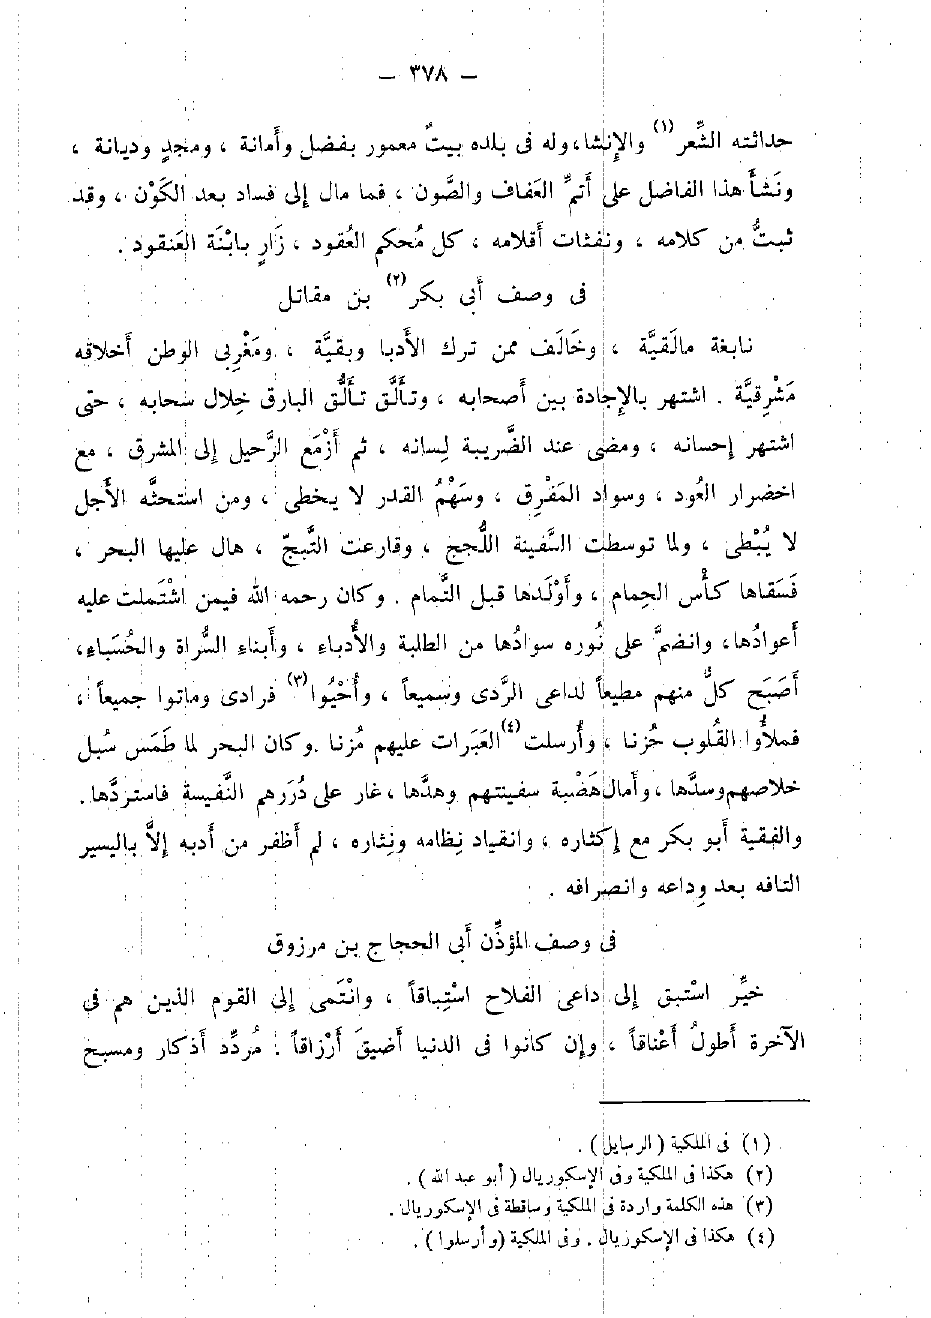 — ٣٧٨ —
حداثته الشِّعر (١) والإنشا، وله فى بلده بيتٌ معمور بفضل وأمانة ، ومجدٍ وديانة ،
ونَشأ هذا الفاضل على أتمِّ العَفاف والصَّون ، فما مال إلى فساد بعد الكَوْن ، وقد
ثبتُّ من كلامه ، ونفثات أقلامه ، كل مُحكم العُقود ، زَارٍ بابْنَة العَنقود .
فى وصف أبى بكر (٢) بن مقاتل
نابغة مالَقيَّة ، وخَالَف ممن ترك الأدبا وبقيَّة ، ومَغْربى الوطن أخلاقه
مَشْرِقيَّة . اشتهر بالإجادة بين أصحابه ، وتألَّق تألُّق البارق خِلال سَحابه ، حتى
اشتهر إحسانه ، ومضى عند الضَّريبة لِسانه ، ثم أزْمَع الرَّحيل إلى المشرق ، مع
اخضرار العُود ، وسواد المَفْرِق ، وسَهْمُ القدر لا يخطى ، ومن استحثَّه الأجل
لا يُبْطى ، ولما توسطت السَّفينة اللُّجج ، وقارعت الثَّبجّ ، هال عليها البحر ،
فَسَقاها كأْس الحِمام ، وأوْلَدها قبل التَّمام . وكان رحمه الله فيمن اشْتَملت عليه
أعوادُها، وانضمَّ على نُوره سوادُها من الطلبة والأُدباء ، وأبناء السُّراة والحُسَباء،
أصَبَح كلٌّ منهم مطيعاً لداعى الرَّدى وسَميعاً ، وأُحْيُوا (٣) فرادى وماتوا جميعاً ،
فملأُوا القُلوب حُزنا ، وأُرسلت (٤) العَبَرات عليهم مُزنا . وكان البحر لما طَمَس سُبل
خلاصهم وسدَّها ، وأمال هَضْبة سفينتهم وهدَّها ، غار على دُرَرهم النَّفيسة فاستردَّها .
والفقية أبو بكر مع إكثاره ، وانقياد نِظامه ونِثاره ، لم أظفر من أدبه إلاَّ باليسير
التافه بعد وِداعه وانصرافه .
فى وصف المؤذِّن أبى الحجاج بن مرزوق
خيِّر اسْتبق إلى داعى الفلاح اسْتِباقاً ، وانْتَمى إلى القوم الذين هم فى
الآخرة أطولُ أعْناقاً ، وإن كانوا فى الدنيا أضيقَ أرْزاقاً : مُردِّد أذكار ومسبح
(١) فى الملكية ( الرسايل ) .
(٢) هكذا فى الملكية وفى الإسكوريال ( أبو عبد الله ) .
(٣) هذه الكلمة واردة فى الملكية وساقطة فى الإسكوريال .
(٤) هكذا فى الإسكوريال . وفى الملكية (وأرسلوا ) .